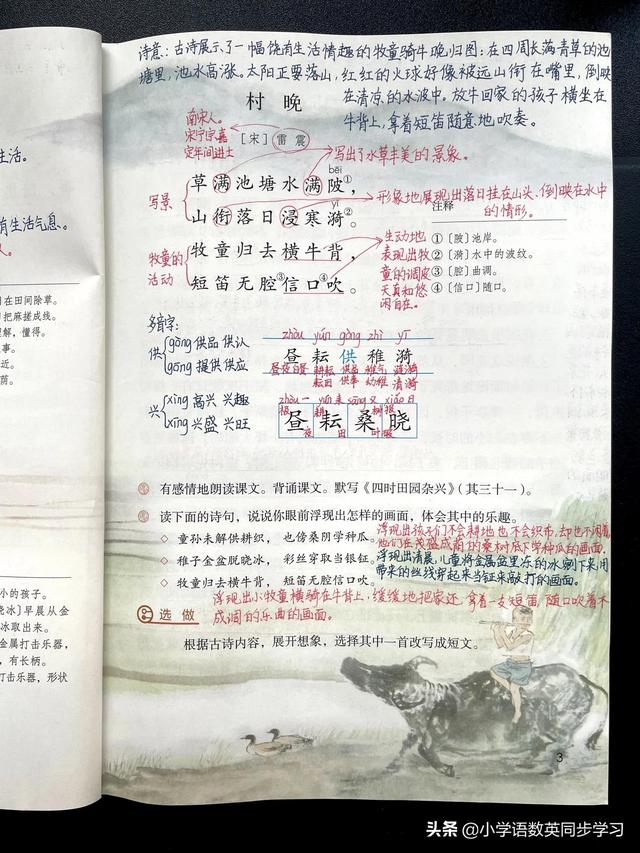 生活。
有生活气息。
]在田间除草。
]把麻搓成线。
理解,懂得。
事。
近。
荫。
小的孩子。
脱冰〕早晨从金
冰取出来。
金属打击乐器,
,有长柄。
打击乐器,形状
诗意:古诗展示了一幅饶有生活情趣的牧童骑牛晚归图:在四周长满青草的池
塘里,池水高涨。太阳正要落山,红红的火球好像被远山衔在嘴里,倒映
在清凉的水波中。放牛回家的孩子横坐在
牛背上,拿着短笛随意地吹奏。
村晚
南宋人。
宋宁宗嘉
定年间进士
[宋] 雷震
写出了水草丰美的景象。
bēi
写景
草满池塘水满陂①,
形象地展现出落日挂在山头、倒映在水中
的情形。
yī
山衔落日浸寒漪②。
注释
牧童的
活动
牧童归去横牛背,
短笛无腔③信口④吹。
生动地
表现出牧
童的调皮
天真和悠
闲自在。
①〔陂〕池岸。
②〔漪〕水中的波纹。
③〔腔〕曲调。
④〔信口〕随口。
多音字:
供
gōng 供品 供认
gōng 提供 供应
兴
xìng 高兴 兴趣
xīng 兴盛 兴旺
zhòu yún gòng zhì yī
昼 耘 供 稚 漪
昼夜 白昼 耕耘 供品 稚气 涟漪
耘田 供事 幼稚 清漪
昼 耘 桑 晓
有感情地朗读课文。背诵课文。默写《四时田园杂兴》(其三十一)。
读下面的诗句,说说你眼前浮现出怎样的画面,体会其中的乐趣。
◇ 童孙未解供耕织,也傍桑阴学种瓜。
浮现出孩子们不会耕地也不会织布,却也不闲着,
他们在茂盛成荫的桑树底下学种瓜的画面。
◇ 稚子金盆脱晓冰,彩丝穿取当银钲。
浮现出清晨,儿童将金属盆里冻的冰剜下来用
带来的丝线穿起来当钲来敲打的画面。
◇ 牧童归去横牛背,短笛无腔信口吹。
浮现出小牧童横骑在牛背上,缓缓地把家还,拿着一支短笛,随口吹着不
成调的乐曲的画面。
选做
根据古诗内容,展开想象,选择其中一首改写成短文。
3
头条 @小学语数英同步学习